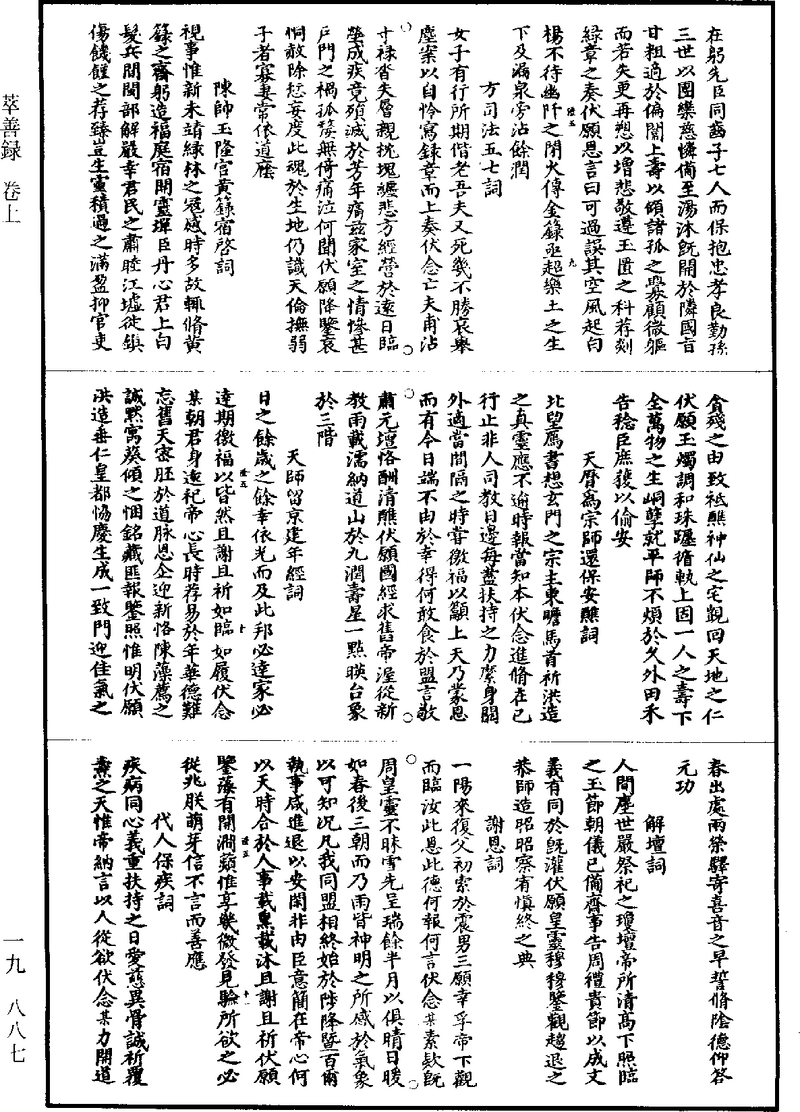 在躬先臣同謫子七人而保抱忠孝良勤孫
三世以團欒慈憐備至湯沐既開於隣國旨
甘粗適於偏闈上壽以傾諸孤之屬顧微軀
而若失更再愬以增悲敬遵玉匱之科荐刻
綠章之奏伏願恩言曰可過誤其空風起白
楊不待幽阡之閉火傳金籙亟超樂土之生
下及漏泉旁沾餘潤
方司法五七詞
女子有行所期偕老吾夫又死幾不勝哀舉
塵案以自怜寫錄章而上奏伏念亡夫甫沾
寸祿甞失層親枕塊纏悲方經營於遠日臨
塋成疾竟殞滅於芳年痛茲家室之情慘甚
戶門之禍孤嫠無倚痛泣何聞伏願降鑒哀
恫赦除愆妄度此魂於生地仍識天倫撫弱
子者寡妻常依道廕
陳帥玉隆官黃籙宿啓詞
視事惟新未靖綠林之冦感時多故輒脩黃
籙之齋躬造福庭宿開靈墠臣丹心君上白
髮兵間閫部解嚴幸君民之肅睦江墟徙鎮
傷饑饉之荐臻豈生靈積過之滿盈抑官吏
貪殘之由致袛醮神仙之宅觀囘天地之仁
伏願玉燭調和珠躔循軌上固一人之壽下
全萬物之生峒孽就平師不煩於久外田禾
告稔臣庶獲以偷安
天曆爲宗師還保安醮詞
北望鴈書想玄門之宗主東瞻馬首祈洪造
之真靈應不逾時報當知本伏念進脩在已
行止非人司教日邊每藎扶持之力縻身闕
外適當間隔之時嘗徼福以籲上天乃蒙恩
而有今日端不由於幸得何敢食於盟言敬
肅元壇恪酬清醮伏願國經求舊帝渥從新
教雨載濡納道山於九澗壽星一點暎台象
於三階
天師留京建年經詞
日之餘歲之餘幸依光而及此邦必達家必
達期徼福以皆然且謝且祈如臨如履伏念
某朝君身遠祀帝心長時荐易於年華德難
忘舊天宻胚於道脉恩企迎新恪陳藻薦之
誠黙寓葵傾之悃銘藏匪報鑒照惟明伏願
洪造垂仁皇都恊慶生成一致門迎佳氣之
春出處兩榮驛寄喜音之早誓脩陰德仰答
元功
解壇詞
人間塵世嚴祭祀之瓊壇帝所清高下照臨
之玉節朝儀已備齋事告周禮貴節以成文
義有同於既灌伏願皇靈穆穆鑒觀趨退之
恭師造昭昭察宥慎終之典
謝恩詞
一陽來復父初索於震男三願幸孚帝下觀
而臨汝此恩此德何報何言伏念某素欵既
周皇靈不昧雪先呈瑞餘半月以俱晴日暖
如春後三朝而乃雨皆神明之所感於氣象
以可知况凡我同盟相終始於陟降暨百爾
執事咸進退以安閑非由臣意簡在帝心何
以天時合於人事載熏載沐且謝且祈伏願
鑒藻有開澗蘋惟享幾微發見驗所欲之必
從兆朕萌芽信不言而善應
代人保疾詞
疾病同心義重扶持之日愛慈異骨誠祈覆
燾之天惟帝納言以人從欲伏念某力開道
萃善録　卷上
一九　八八七